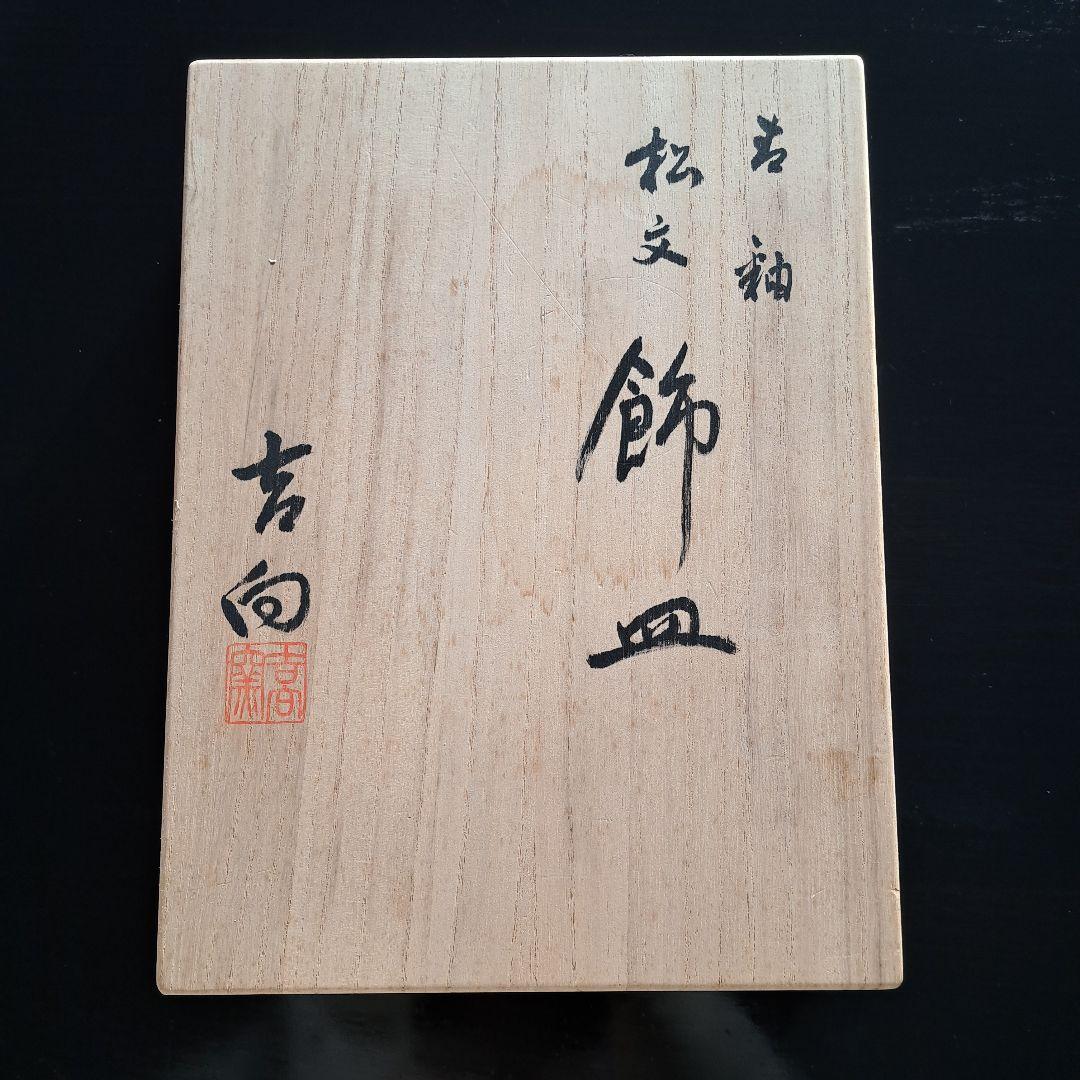 青釉
松文
飾皿
吉向
吉向窯